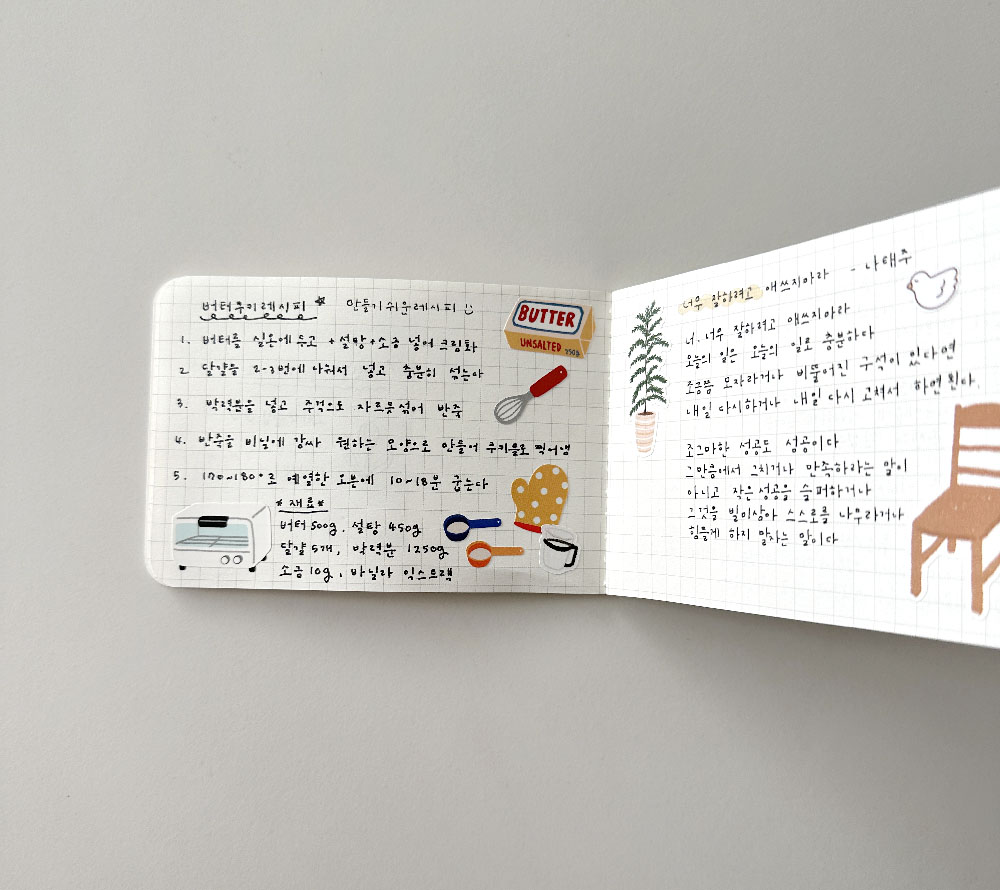 버터쿠키레시피 만들기 쉬운 레시피 :)
1. 버터를 실온에 두고 + 설탕+소금 넣어 크림화
2 달걀을 2-3번에 나눠서 넣고 충분히 섞는다
3. 박력분을 넣고 주걱으로 자르듯 섞어 반죽
4. 반죽을 비닐에 감싸 원하는 모양으로 만들어 쿠키틀로 찍어냄
5. 170~180°로 예열한 오븐에 10~18분 굽는다
*재료*
버터 500g. 설탕 450g
달걀 5개, 박력분 1250g
소금 10g, 바닐라 익스트랙
BUTTER
UNSALTED 250g
너무 잘하려고 애쓰지마라 - 나태주
너. 너무 잘하려고 애쓰지마라
오늘의 일은 오늘의 일로 충분하다
조금쯤 모자라거나 비뚤어진 구석이 있다면
내일 다시하거나 내일 다시 고쳐서 하면된다.
조그마한 성공도 성공이다
그만큼에서 그치거나 만족하라는 말이
아니고 작은성공을 슬퍼하거나
그것을 빌미삼아 스스로를 나무라거나
힘들게 하지 말자는 말이다